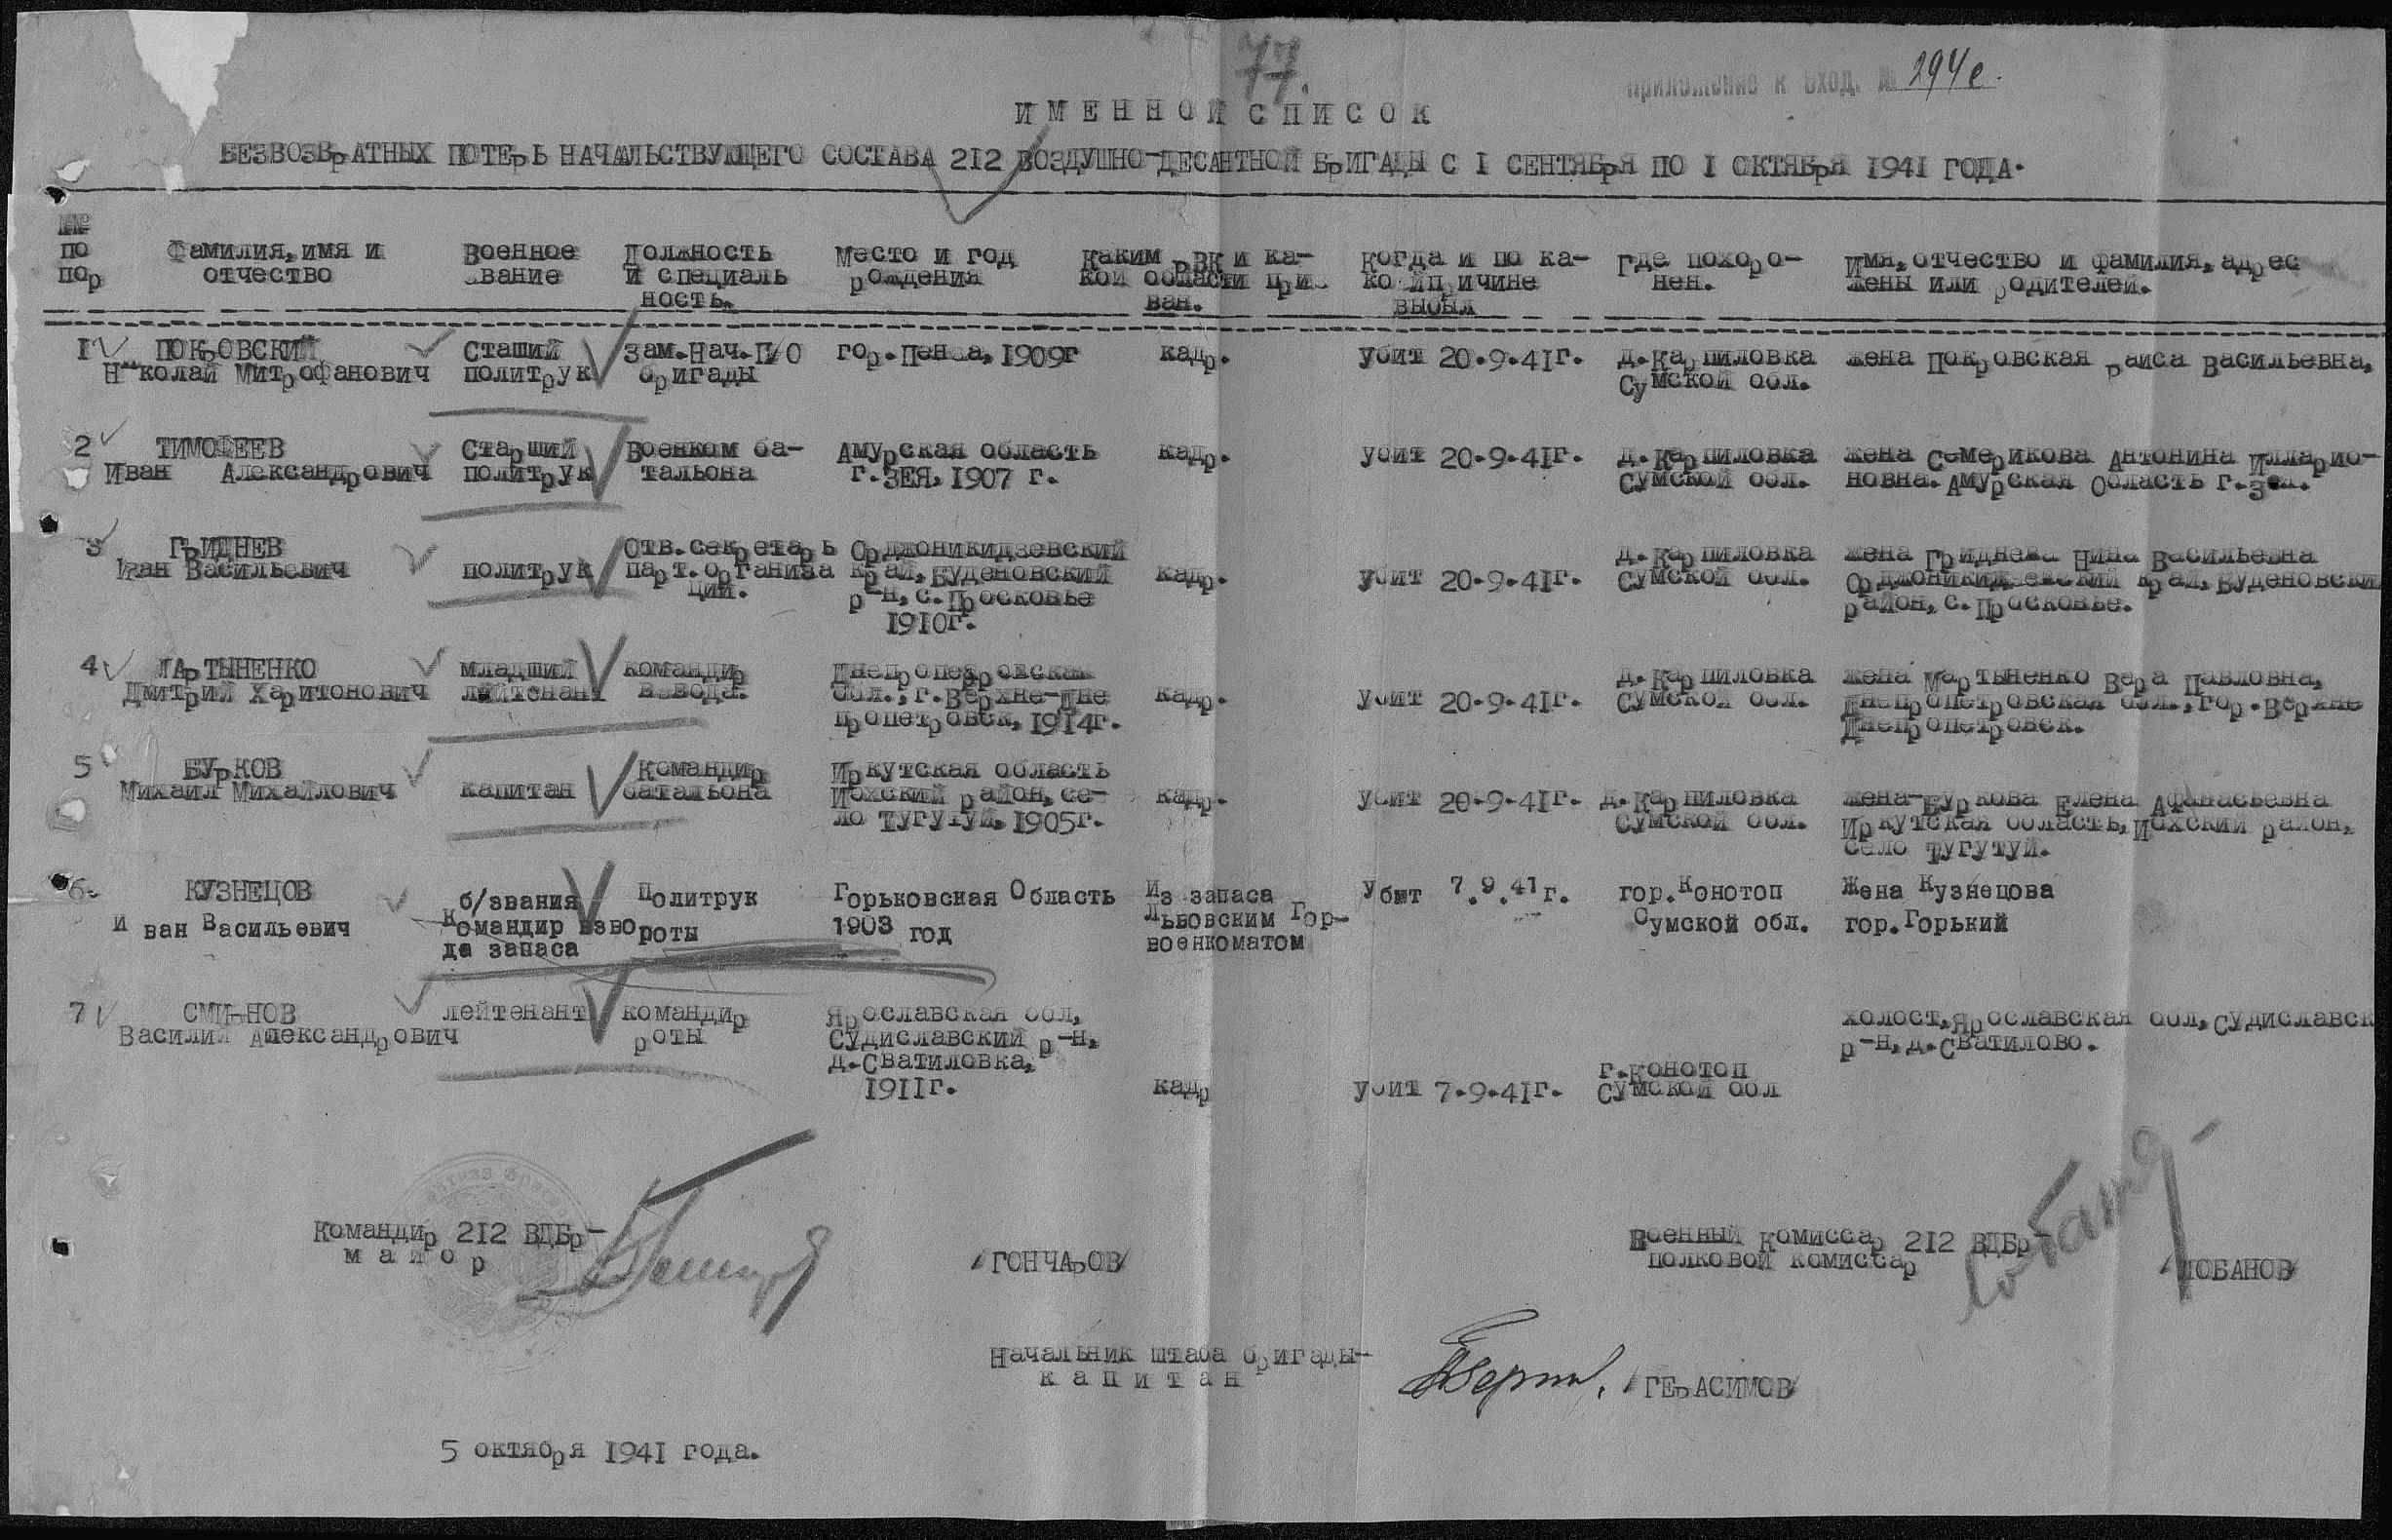 77.
приложение к вход. № 294с.
ИМЕННОЙ СПИСОК
БЕЗВОЗВРАТНЫХ ПОТЕРЬ НАЧАЛЬСТВУЮЩЕГО СОСТАВА 212 ВОЗДУШНО-ДЕСАНТНОЙ БРИГАДЫ С I СЕНТЯБРЯ ПО I ОКТЯБРЯ 1941 ГОДА.
№№ по пор
Фамилия, имя и отчество
Военное звание
Должность и специаль ность.
Место и год рождения
Каким РВК и ка- кой области приз ван.
Когда и по ка- кой причине выбыл
Где похоро- нен.
Имя, отчество и фамилия, адрес жены или родителей.
I ПОКРОВСКИЙ Сташий Зам.Нач.П/О гор.Пенза, 1909г кадр. убит 20.9.41г. д.Карпиловка жена Покровская Раиса Васильевна,
Николай Митрофанович политрук бригады Сумской обл.
2 ТИМОФЕЕВ Старший Военком ба- Амурская область кадр. убит 20-9-41г. д.Карпиловка жена Семерикова Антонина Илларио-
Иван Александрович политрук тальона г.ЗЕЯ, 1907 г. Сумской обл. новна. Амурская Область г.Зея.
3 ГРИДНЕВ Отв.секретарь Орджоникидзевский д.Карпиловка жена Гриднева Нина Васильевна
Иван Васильевич политрук парт.организа край, Буденовский кадр. убит 20-9-41г. Сумской обл. Орджоникидзевский край, Буденовский
ции. р-н, с.Просковье район, с.Просковье.
1910г.
4 МАРТЫНЕНКО младший командир Днепропетровская д.Карпиловка жена Мартыненко Вера Павловна,
Дмитрий Харитонович лейтенант взвода. обл., г.Верхне-Дне кадр. убит 20-9-41г. Сумской обл. Днепропетровская обл., гор.Верхне
пропетровск, 1914г. Днепропетровск.
5 БУРКОВ Командир Иркутская область
Михаил Михайлович капитан батальона Иохский район, се- кадр. убит 20-9-41г. д.Карпиловка жена-Буркова Елена Афанасьевна
ло Тугутуй, 1905г. Сумской обл. Иркутская область, Иохский район,
село Тугутуй.
6. КУЗНЕЦОВ б/звания Политрук Горьковская Область Из запаса Убит 7.9.41г. гор.Конотоп Жена Кузнецова
Иван Васильевич Командир взво роты 1903 год Львовским Гор- Сумской обл. гор.Горький
да запаса военкоматом
7 СМИРНОВ лейтенант командир Ярославская обл, холост, Ярославская обл, Судиславск
Василий Александрович роты Судиславский р-н, р-н, д.Сватилово.
д.Сватиловка, г.Конотоп
1911г. кадр убит 7-9-41г. Сумской обл
Командир 212 ВДБр-
майор
/ГОНЧАРОВ/
Военный Комиссар 212 ВДБр-
полковой комиссар
Лобанов
/ЛОБАНОВ/
Начальник штаба бригады-
капитан
/ГЕРАСИМОВ/
5 октября 1941 года.